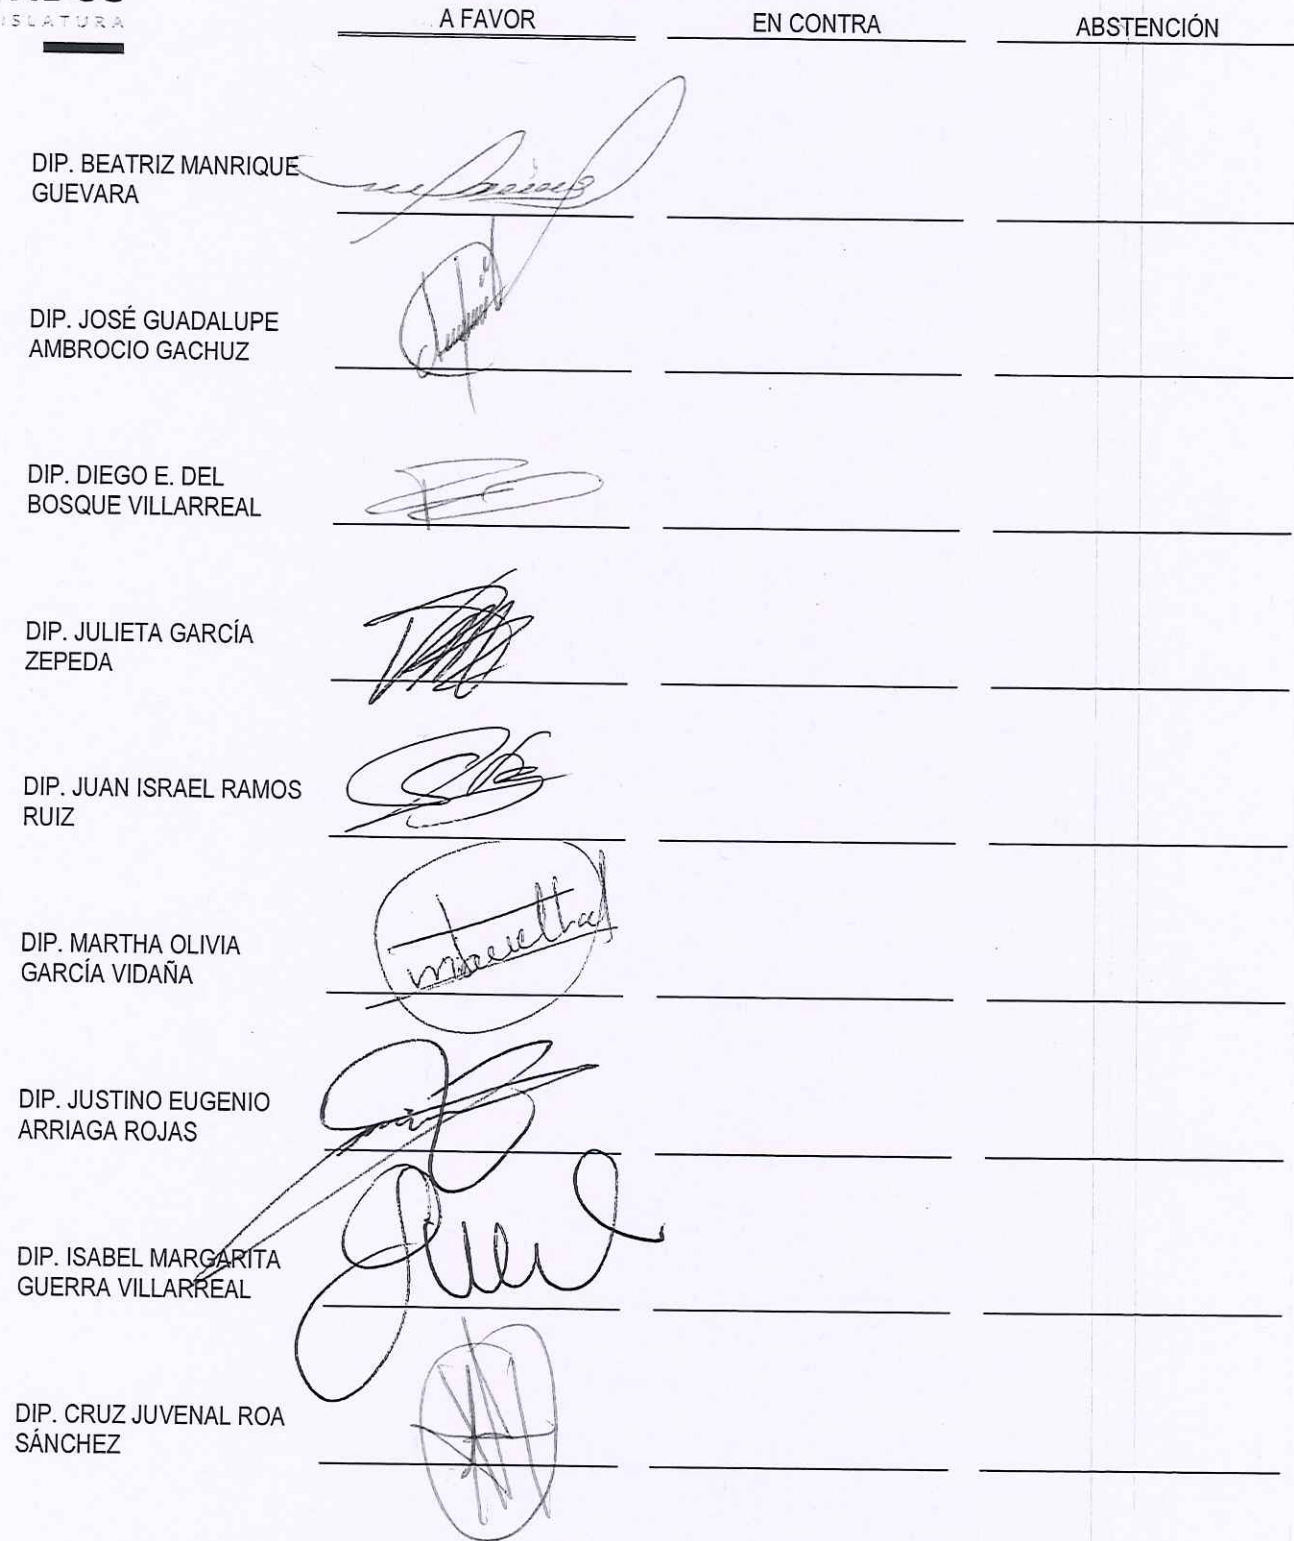 ISLATURA
A FAVOR EN CONTRA ABSTENCIÓN
DIP. BEATRIZ MANRIQUE
GUEVARA
DIP. JOSÉ GUADALUPE
AMBROCIO GACHUZ
DIP. DIEGO E. DEL
BOSQUE VILLARREAL
DIP. JULIETA GARCÍA
ZEPEDA
DIP. JUAN ISRAEL RAMOS
RUIZ
DIP. MARTHA OLIVIA
GARCÍA VIDAÑA
DIP. JUSTINO EUGENIO
ARRIAGA ROJAS
DIP. ISABEL MARGARITA
GUERRA VILLARREAL
DIP. CRUZ JUVENAL ROA
SÁNCHEZ